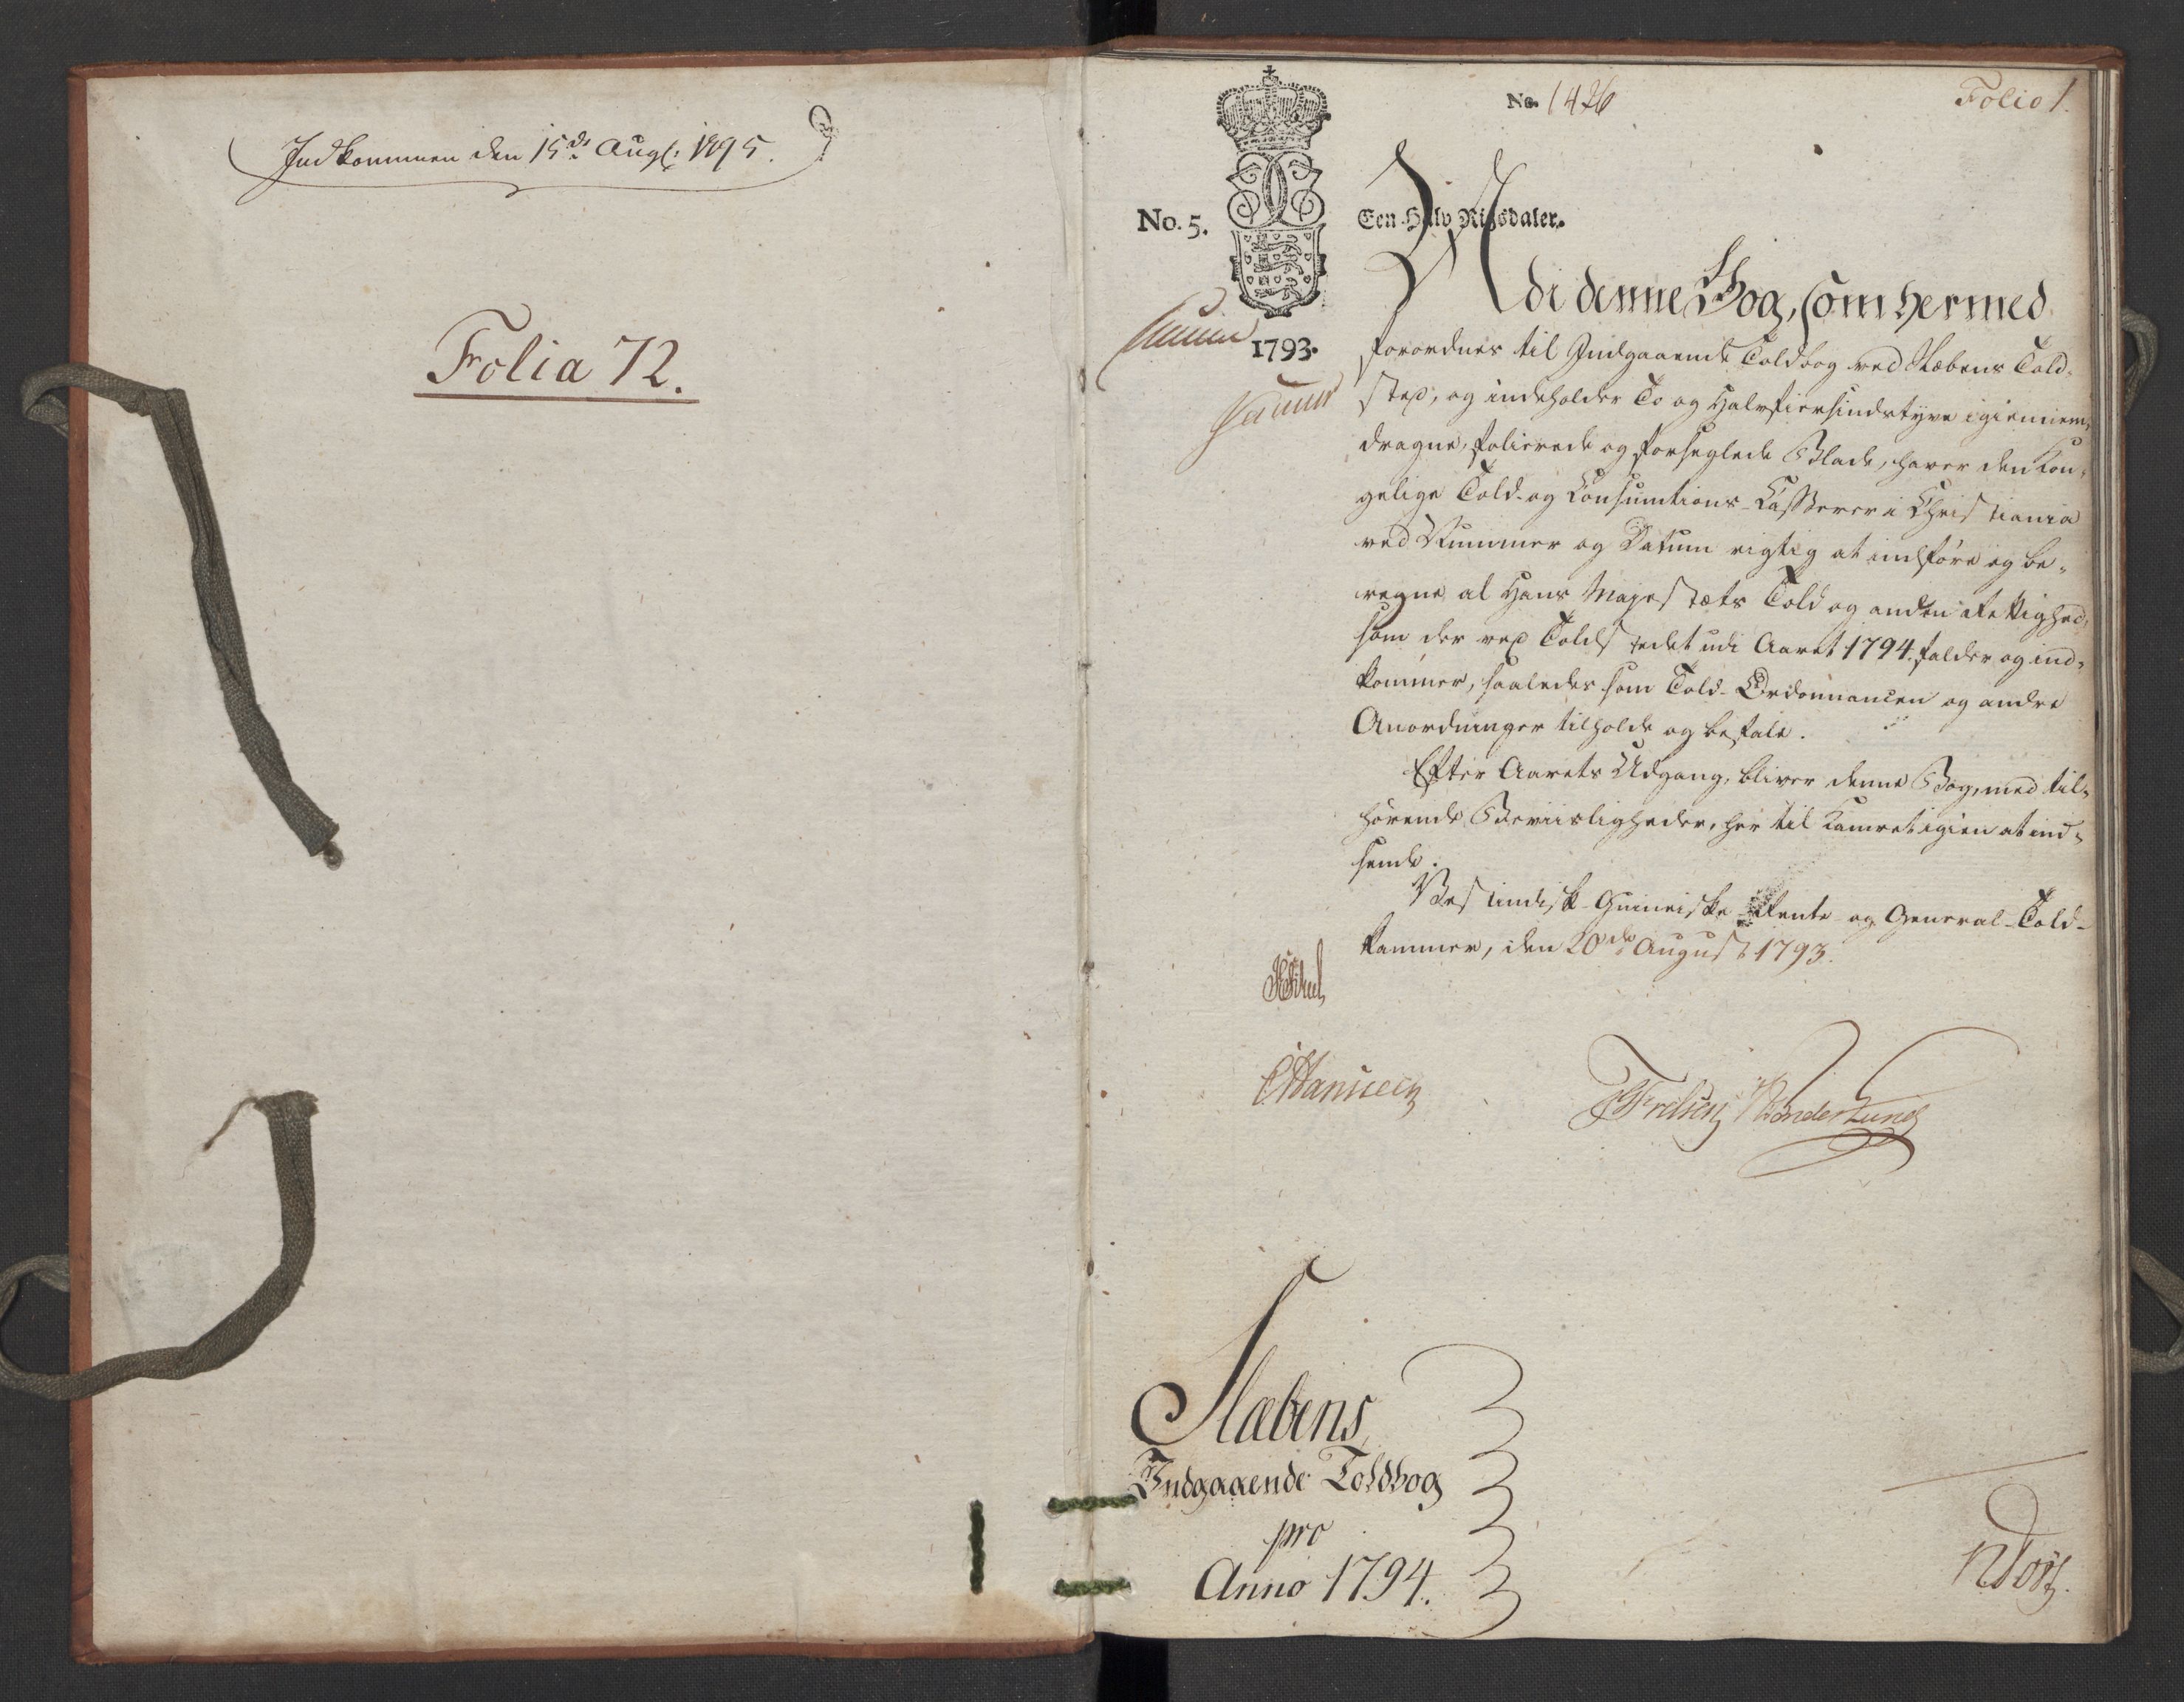 Indkommen den 15de Augs: 1795.
Folia 72.
No. 1426
Folio 1.
No. 5.
Een Halv Rigsdaler.
1793.
Udi denne Bog, som hermed
forordnes til Indgaaende Toldbog ved Slæbens Told-
sted, og indeholder To og Halvfiersindstyve igiennem-
dragne, folierede og forseglede Blade, haver den Kon-
gelige Told- og Consumtions-Casserer i Christiania
ved Nummer og Datum rigtig at indføre og be-
regne al Hans Majestæts Told og anden Rettighed,
som der ved Toldstedet udi Aaret 1794. falder og ind-
kommer, saaledes som Told-Ordonnancen og andre
Anordninger tilholde og befale.
Efter Aarets Udgang, bliver denne Bog, med til-
hørende Beviisligheder, her til Kamret igien at ind-
sende.
Vestindisk-Guineiske Rente- og General-Told-
kammer, den 20de August 1793.
Slæbens
Indgaaende Toldbog
pro
Anno 1794.